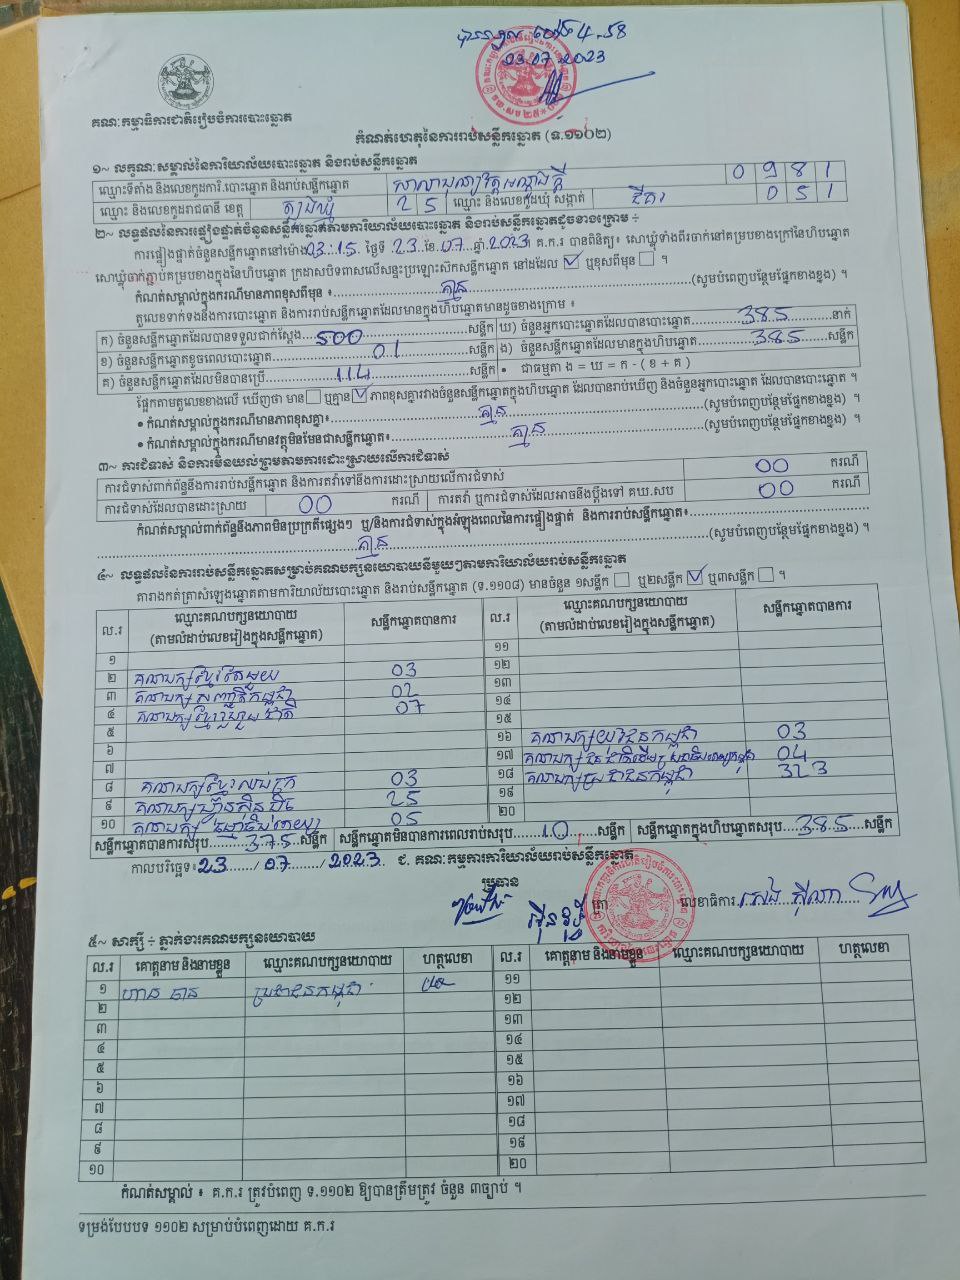 03.07.2023
គណៈកម្មាធិការជាតិរៀបចំការបោះឆ្នោត
កំណត់ហេតុនៃការរាប់សន្លឹកឆ្នោត (ទ.១១០២)
១~ លក្ខណៈសម្គាល់នៃការិយាល័យបោះឆ្នោត និងរាប់សន្លឹកឆ្នោត
ឈ្មោះទីតាំង និងលេខកូដការិ.បោះឆ្នោត និងរាប់សន្លឹកឆ្នោត 0 9 8 1
ឈ្មោះ និងលេខកូដរាជធានី ខេត្ត ត្បូងឃ្មុំ 2 5 ឈ្មោះ និងលេខកូដឃុំ សង្កាត់ 0 5 1
២~ លទ្ធផលនៃការផ្ទៀងផ្ទាត់ចំនួនសន្លឹកឆ្នោតតាមការិយាល័យបោះឆ្នោត និងរាប់សន្លឹកឆ្នោតដូចខាងក្រោម ÷
ការផ្ទៀងផ្ទាត់ចំនួនសន្លឹកឆ្នោតនៅម៉ោង 03:15 ថ្ងៃទី 23 ខែ 07 ឆ្នាំ 2023 គ.ក.រ បានពិនិត្យ៖ សោឃ្មុំទាំងពីរចាក់នៅគម្របខាងក្រៅនៃហិបឆ្នោត
សោឃ្មុំចាក់ភ្ជាប់គម្របខាងក្នុងនៃហិបឆ្នោត ក្រដាសបិទពាសលើសន្ទះប្រឡោះស៊កសន្លឹកឆ្នោត នៅដដែល ឬខុសពីមុន ។
កំណត់សម្គាល់ក្នុងករណីមានភាពខុសពីមុន ៖ គ្មាន (សូមបំពេញបន្ថែមផ្នែកខាងខ្នង) ។
តួលេខទាក់ទងនឹងការបោះឆ្នោត និងការរាប់សន្លឹកឆ្នោតដែលមានក្នុងហិបឆ្នោតមានដូចខាងក្រោម ៖
ក) ចំនួនសន្លឹកឆ្នោតដែលបានទទួលជាក់ស្តែង 500 សន្លឹក ឃ) ចំនួនអ្នកបោះឆ្នោតដែលបានបោះឆ្នោត 385 នាក់
ខ) ចំនួនសន្លឹកឆ្នោតខូចពេលបោះឆ្នោត 01 សន្លឹក ង) ចំនួនសន្លឹកឆ្នោតដែលមានក្នុងហិបឆ្នោត 385 សន្លឹក
គ) ចំនួនសន្លឹកឆ្នោតដែលមិនបានប្រើ 114 សន្លឹក • ជាធម្មតា ង = ឃ = ក - ( ខ + គ )
ផ្អែកតាមតួលេខខាងលើ ឃើញថា មាន ឬគ្មាន ភាពខុសគ្នារវាងចំនួនសន្លឹកឆ្នោតក្នុងហិបឆ្នោត ដែលបានរាប់ឃើញ និងចំនួនអ្នកបោះឆ្នោត ដែលបានបោះឆ្នោត ។
• កំណត់សម្គាល់ក្នុងករណីមានភាពខុសគ្នា៖ គ្មាន (សូមបំពេញបន្ថែមផ្នែកខាងខ្នង) ។
• កំណត់សម្គាល់ក្នុងករណីមានវត្ថុមិនមែនជាសន្លឹកឆ្នោត៖ គ្មាន (សូមបំពេញបន្ថែមផ្នែកខាងខ្នង) ។
៣~ ការជំទាស់ និងការមិនយល់ព្រមតាមការដោះស្រាយលើការជំទាស់
ការជំទាស់ពាក់ព័ន្ធនឹងការរាប់សន្លឹកឆ្នោត និងការតវ៉ាទៅនឹងការដោះស្រាយលើការជំទាស់ 00 ករណី
ការជំទាស់ដែលបានដោះស្រាយ 00 ករណី ការតវ៉ា ឬការជំទាស់ដែលអាចនឹងប្តឹងទៅ គឃ.សប 00 ករណី
កំណត់សម្គាល់ពាក់ព័ន្ធនឹងភាពមិនប្រក្រតីផ្សេងៗ ឬ/និងការជំទាស់ក្នុងអំឡុងពេលនៃការផ្ទៀងផ្ទាត់ និងការរាប់សន្លឹកឆ្នោត៖
គ្មាន (សូមបំពេញបន្ថែមផ្នែកខាងខ្នង) ។
៤~ លទ្ធផលនៃការរាប់សន្លឹកឆ្នោតសម្រាប់គណបក្សនយោបាយនីមួយៗតាមការិយាល័យរាប់សន្លឹកឆ្នោត
តារាងកត់ត្រាសំឡេងឆ្នោតតាមការិយាល័យបោះឆ្នោត និងរាប់សន្លឹកឆ្នោត (ទ.១១០៨) មានចំនួន ១សន្លឹក ឬ២សន្លឹក ឬ៣សន្លឹក ។
ល.រ ឈ្មោះគណបក្សនយោបាយ (តាមលំដាប់លេខរៀងក្នុងសន្លឹកឆ្នោត) សន្លឹកឆ្នោតបានការ ល.រ ឈ្មោះគណបក្សនយោបាយ (តាមលំដាប់លេខរៀងក្នុងសន្លឹកឆ្នោត) សន្លឹកឆ្នោតបានការ
១ ១១
២ គណបក្សខ្មែរតែមួយ 03 ១២
៣ គណបក្សសញ្ជាតិកម្ពុជា 02 ១៣
៤ គណបក្សខ្មែររួបរួមជាតិ 07 ១៤
៥ ១៥
៦ ១៦ គណបក្សយុវជនកម្ពុជា 03
៧ ១៧ គណបក្ស 04
៨ គណបក្សខ្មែរឈប់ក្រ 03 ១៨ គណបក្សប្រជាជនកម្ពុជា 323
៩ គណបក្សហ៊្វុនស៊ិនប៉ិច 25 ១៩
១០ គណបក្ស 05 ២០
សន្លឹកឆ្នោតបានការសរុប 375 សន្លឹក សន្លឹកឆ្នោតមិនបានការពេលរាប់សរុប 10 សន្លឹក សន្លឹកឆ្នោតក្នុងហិបឆ្នោតសរុប 385 សន្លឹក
កាលបរិច្ឆេទ៖ 23 / 07 / 2023 ជ. គណៈកម្មការការិយាល័យរាប់សន្លឹកឆ្នោត
ប្រធាន
ត្រា លេខាធិការ
៥~ សាក្សី ÷ ភ្នាក់ងារគណបក្សនយោបាយ
ល.រ គោត្តនាម និងនាមខ្លួន ឈ្មោះគណបក្សនយោបាយ ហត្ថលេខា ល.រ គោត្តនាម និងនាមខ្លួន ឈ្មោះគណបក្សនយោបាយ ហត្ថលេខា
១ ប្រជាជនកម្ពុជា ១១
២ ១២
៣ ១៣
៤ ១៤
៥ ១៥
៦ ១៦
៧ ១៧
៨ ១៨
៩ ១៩
១០ ២០
កំណត់សម្គាល់ ៖ គ.ក.រ ត្រូវបំពេញ ទ.១១០២ ឱ្យបានត្រឹមត្រូវ ចំនួន ៣ច្បាប់ ។
ទម្រង់បែបបទ ១១០២ សម្រាប់បំពេញដោយ គ.ក.រ